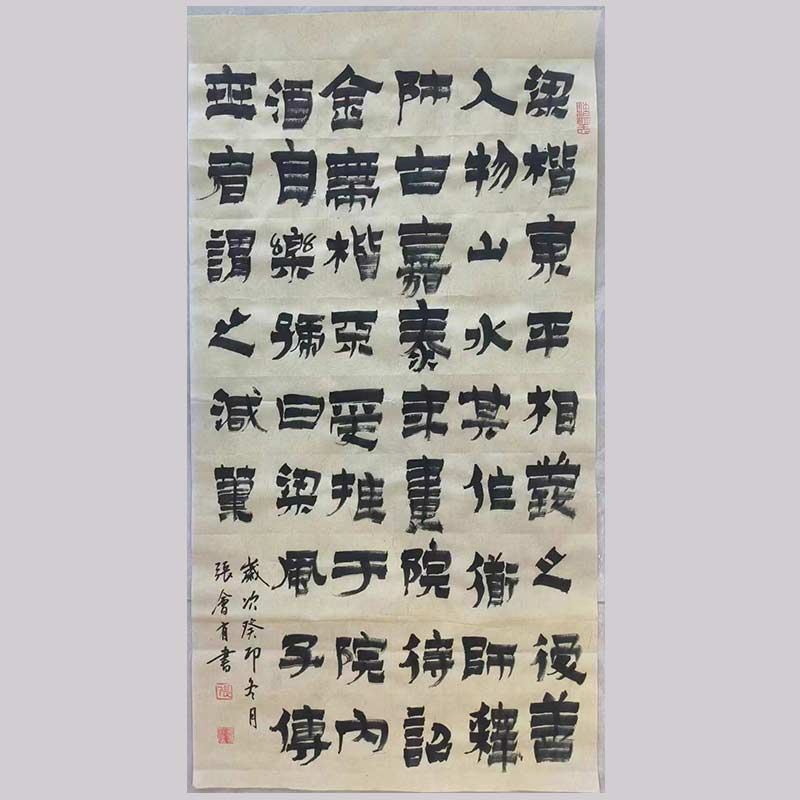 梁楷東平相羲之後善
人物山水其作道師釋
師古嘉泰年畫院待詔
金帶楷不受掛于院內
酒自樂號曰梁風子傳
世者謂之減筆
歲次癸卯冬月
張會書